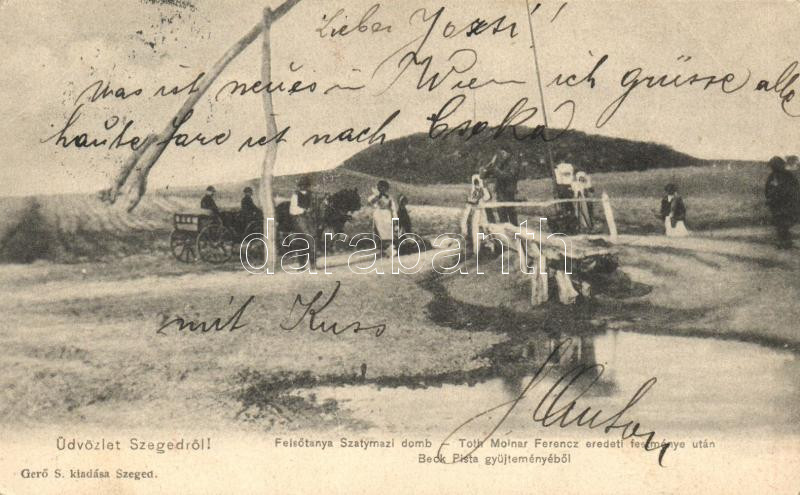 Lieber Joszi!
was ist neues in Wien ich grüsse alle
haute fare ist nach Csoka
mit Kuss
darabanth
Üdvözlet Szegedről!
Felsőtanya Szatymazi domb – Toth Molnar Ferencz eredeti festménye után
Beck Pista gyüjteményéből
Gerő S. kiadása Szeged.